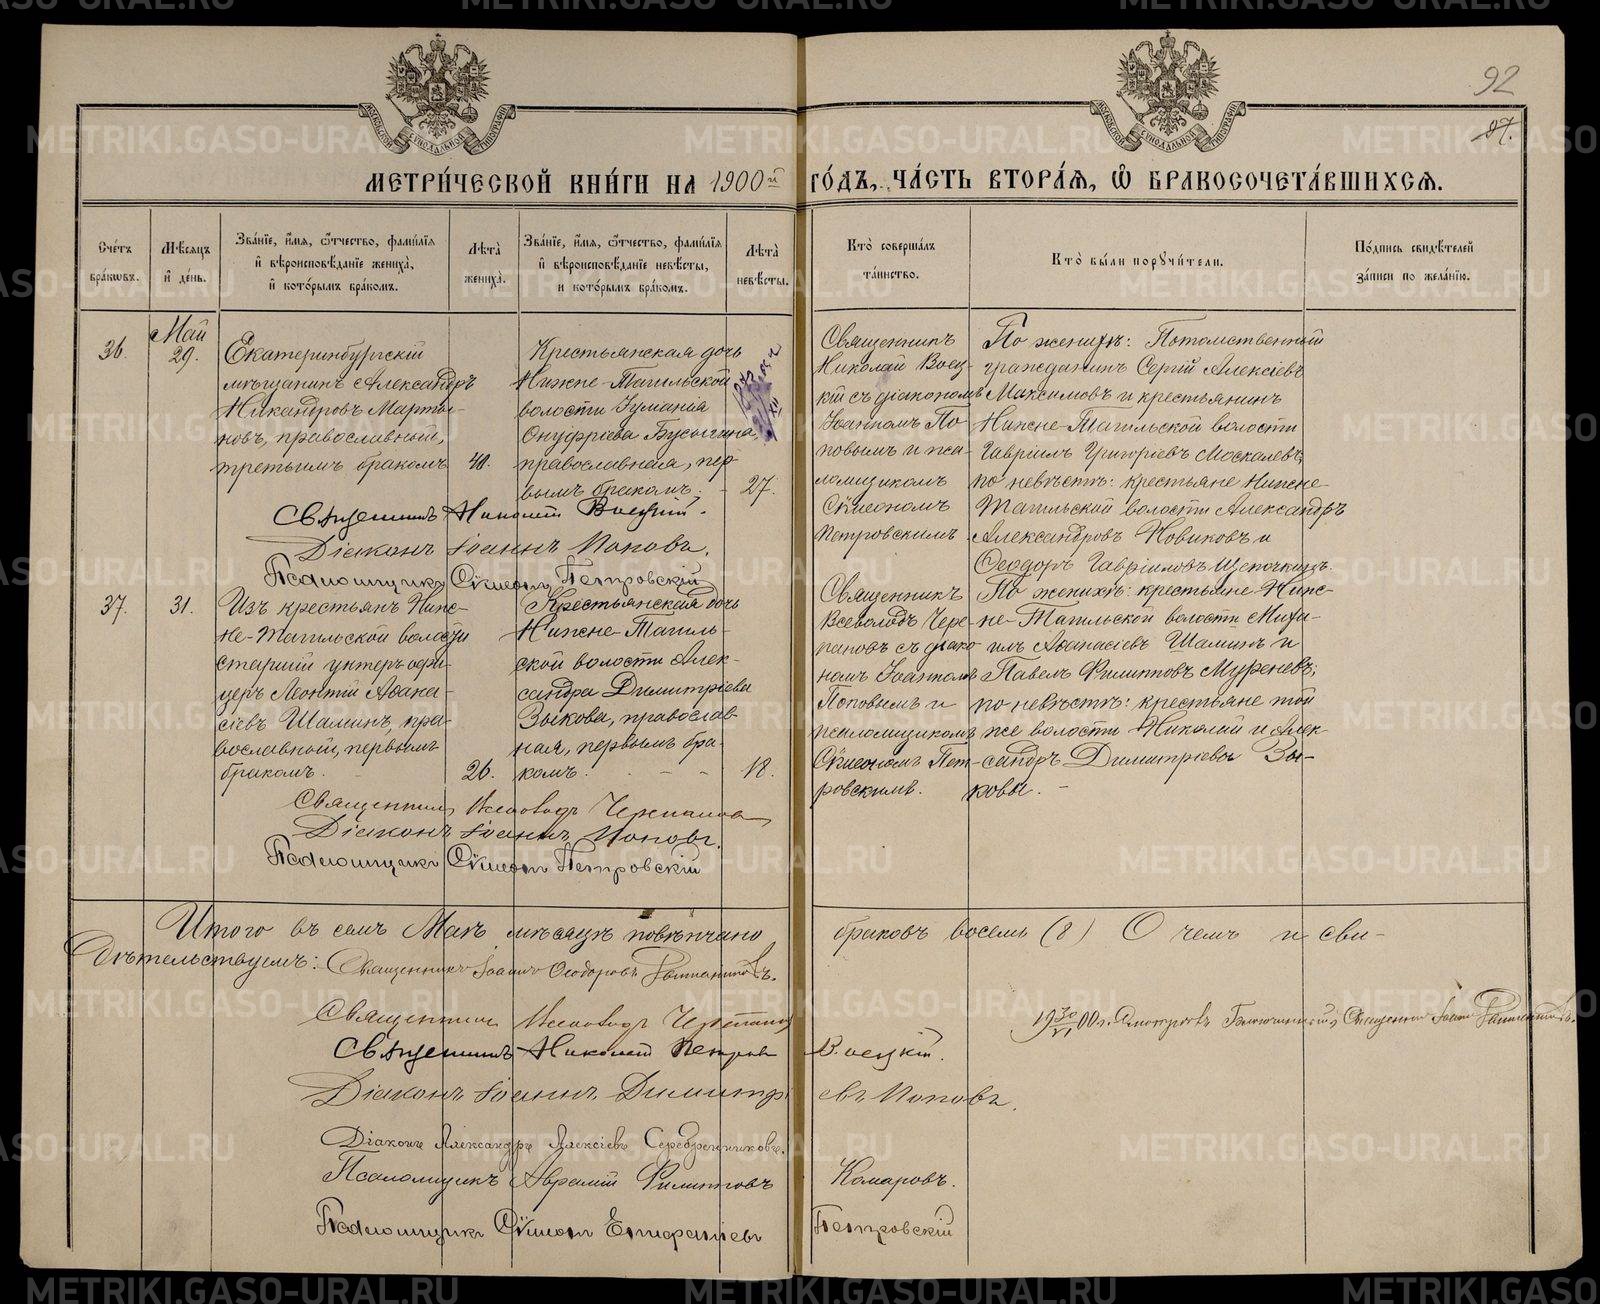 92
87.
МЕТРИ́ЧЕСКОЙ КНИ́ГИ НА 1900й ГО́ДЪ, ЧА́СТЬ ВТОРА́Я, Ѿ БРАКОСОЧЕТА́ВШИХСЯ.
Сче́тъ бра́кωвъ.
Мѣ́сяцъ и де́нь.
Зва́нїе, и́мя, ѻ́тчество, фами́лїя и вѣроисповѣ́данїе жениха̀, и кото́рымъ бра́комъ.
Лѣта̀ жениха̀.
Зва́нїе, и́мя, ѻ́тчество, фами́лїя и вѣроисповѣ́данїе невѣ́сты, и кото́рымъ бра́комъ.
Лѣта̀ невѣ́сты.
Кто̀ соверша́лъ та́инство.
Кто̀ бы́ли порꙋчи́тели.
По́дпись свидѣ́телей за́писи по жела́нїю.
36.
Май
29.
Екатеринбургскій
мѣщанинъ Александръ
Никандровъ Марты-
новъ, православный,
третьимъ бракомъ
40.
Крестьянская дочь
Нижне-Тагильской
волости
Онуфріева Бусыгина,
православная, пер-
вымъ бракомъ.
27.
Священникъ
Николай Воец-
кій съ діакономъ
Іоанномъ По
повымъ и пса-
ломщикомъ
Сѵмеономъ
Петровскимъ
По женихѣ: Потомственный
гражданинъ Сергій Алексіевъ
Максимовъ и крестьянинъ
Нижне-Тагильской волости
Гавріилъ Григоріевъ Москалевъ;
по невѣстѣ: крестьяне Нижне-
Тагильской волости Александръ
Александровъ Новиковъ и
Ѳеодоръ Гавріиловъ Щепочкинъ.
Священникъ Николай Воецкій.
Діаконъ Іоаннъ Поповъ.
Псаломщикъ Сѵмеонъ Петровскій
37.
31.
Изъ крестьянъ Ниж-
не-Тагильской волости
старшій унтеръ офи-
церъ Леонтій Аѳана-
сіевъ Шаминъ, пра-
вославный, первымъ
бракомъ.
26.
Крестьянская дочь
Нижне-Тагиль-
ской волости Алек-
сандра Димитріева
Зыкова, православ-
ная, первымъ бра-
комъ.
18.
Священникъ
Всеволодъ Чере-
пановъ съ діако
номъ Іоанномъ
Поповымъ и
псаломщикомъ
Сѵмеономъ Пет-
ровскимъ.
По женихѣ: крестьяне Ниж-
не-Тагильской волости Миха-
илъ Аѳанасіевъ Шаминъ и
Павелъ Филипповъ Муреневъ;
по невѣстѣ: крестьяне той
же волости Николай и Алек
сандръ Димитріевы Зы-
ковы.
Священникъ Всеволодъ Черепановъ
Діаконъ Іоаннъ Поповъ.
Псаломщикъ Сѵмеонъ Петровскій
Итого въ семъ Маѣ мѣсяцѣ повѣнчано браковъ восемь (8) О чемъ и сви-
дѣтельствуемъ: Священникъ Іоаннъ Ѳеодоровъ
Священникъ Всеволодъ Черепановъ
Священникъ Николай Петровъ Воецкій.
Діаконъ Іоаннъ Димитріевъ Поповъ.
Діаконъ Александръ Алексіевъ Серебренниковъ.
Псаломщикъ Аврамій Филипповъ Комаровъ.
Псаломщикъ Сѵмеонъ Епифаніевъ Петровскій
METRIKI.GASO-URAL.RU